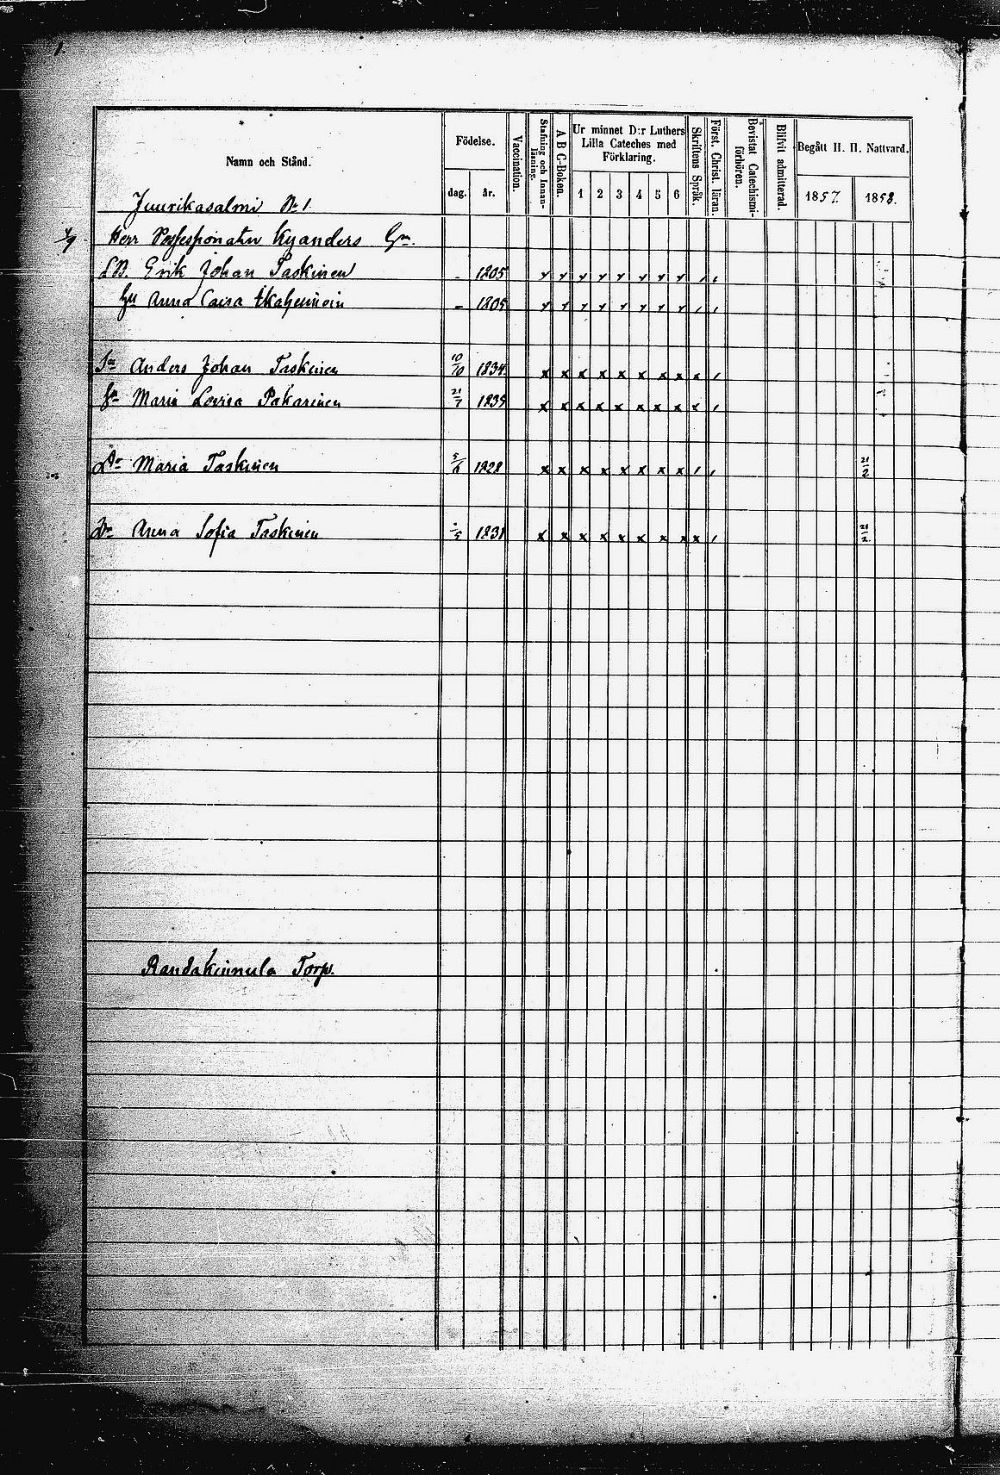 1
Namn och Stånd.
Födelse.
dag.
år.
Vaccination.
Stafning och Innan-
läsning.
A B C-Boken.
Ur minnet D:r Luthers
Lilla Cateches med
Förklaring.
1 2 3 4 5 6
Skriftens Språk.
Först. Christ. läran.
Bevistat Catechismi-
förhören.
Blifvit admitterad.
Begått H. H. Nattvard.
1857. 1858.
Juurikasalmi No 1.
Herr Possessionaten Kyanders
Erik Johan Taskinen - 1805
Anna Caisa - 1805
Sn Anders Johan Taskinen 10/10 1834
Maria Lovisa Pakarinen 21/7 1835
Dr Maria Taskinen 5/6 1828 21/2
Dr Anna Sofia Taskinen 1831 21/2
Randakinnula Torp.